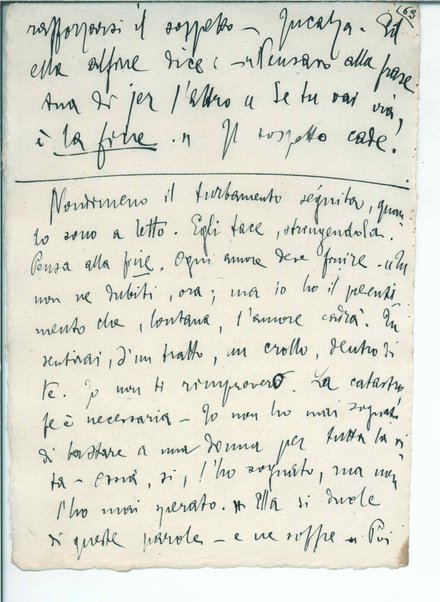 63
rafforzarsi il sospetto – Incalza. Ed
ella alfine dice: – «Pensavo alla frase
tua di jer l'altro « Se tu vai via,
è la fine. » Il sospetto cade.
Nondimeno il turbamento séguita, quan
do sono a letto. Egli tace, stringendola.
Pensa alla fine. Ogni amore deve finire. «Tu
non ne dubiti, ora; ma io ho il presenti
mento che, lontana, l'amore cadrà. Tu
sentirai, d'un tratto, un crollo, dentro di
te. Io non ti rimprovero. La catastro
fe è necessaria – Io non ho mai sognato
di bastare a una donna per tutta la vi
ta – cioè, sì, l'ho sognato, ma non
l'ho mai sperato. » Ella si duole
di queste parole – e ne soffre – Poi